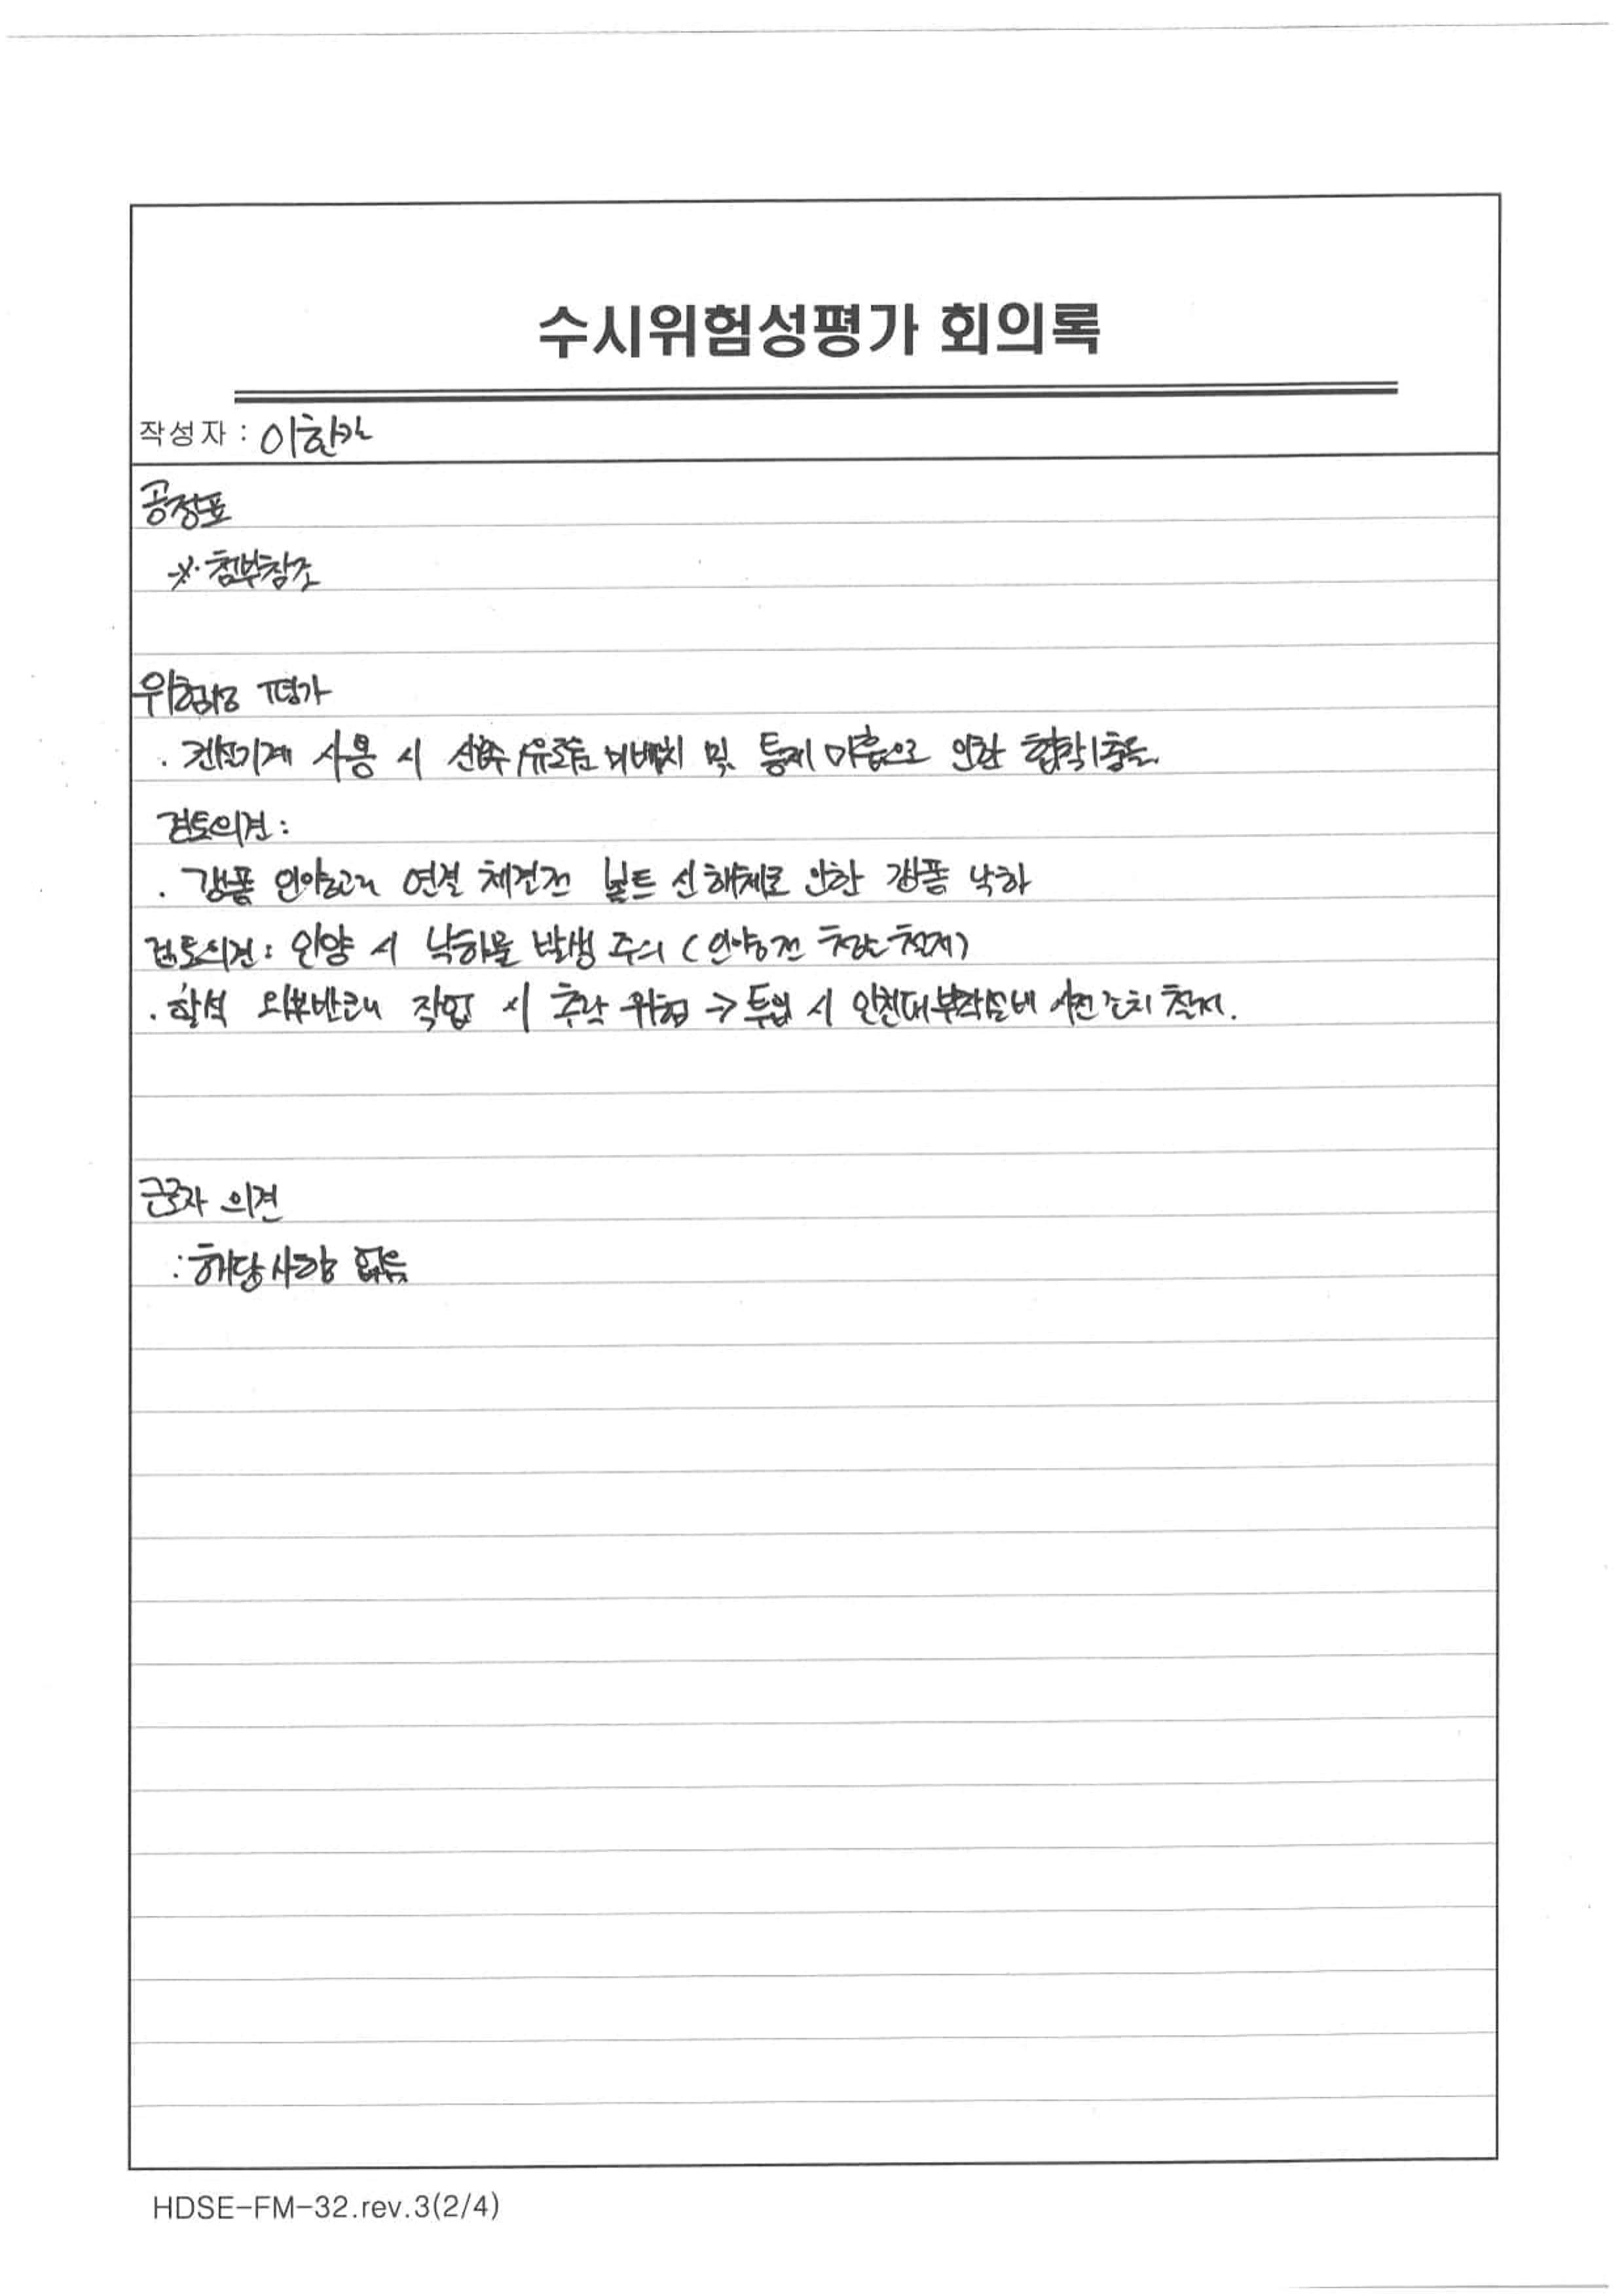 수시위험성평가 회의록
작성자 :
공정표
※ 첨부참조
위험성 평가
. 건설기계 사용 시 신호수/유도원 미배치 및 통제 미흡으로 인한 협착/충돌.
검토의견 :
. 갱폼 인양고리 연결 체결전 볼트 선해체로 인한 갱폼 낙하
검토의견 : 인양 시 낙하물 발생 주의 (인양전 철저)
. 할석 외부반코너 작업 시 추락 위험 → 투입 시 안전대부착설비 사전조치 철저.
근로자 의견
: 해당사항 없음
HDSE-FM-32.rev.3(2/4)